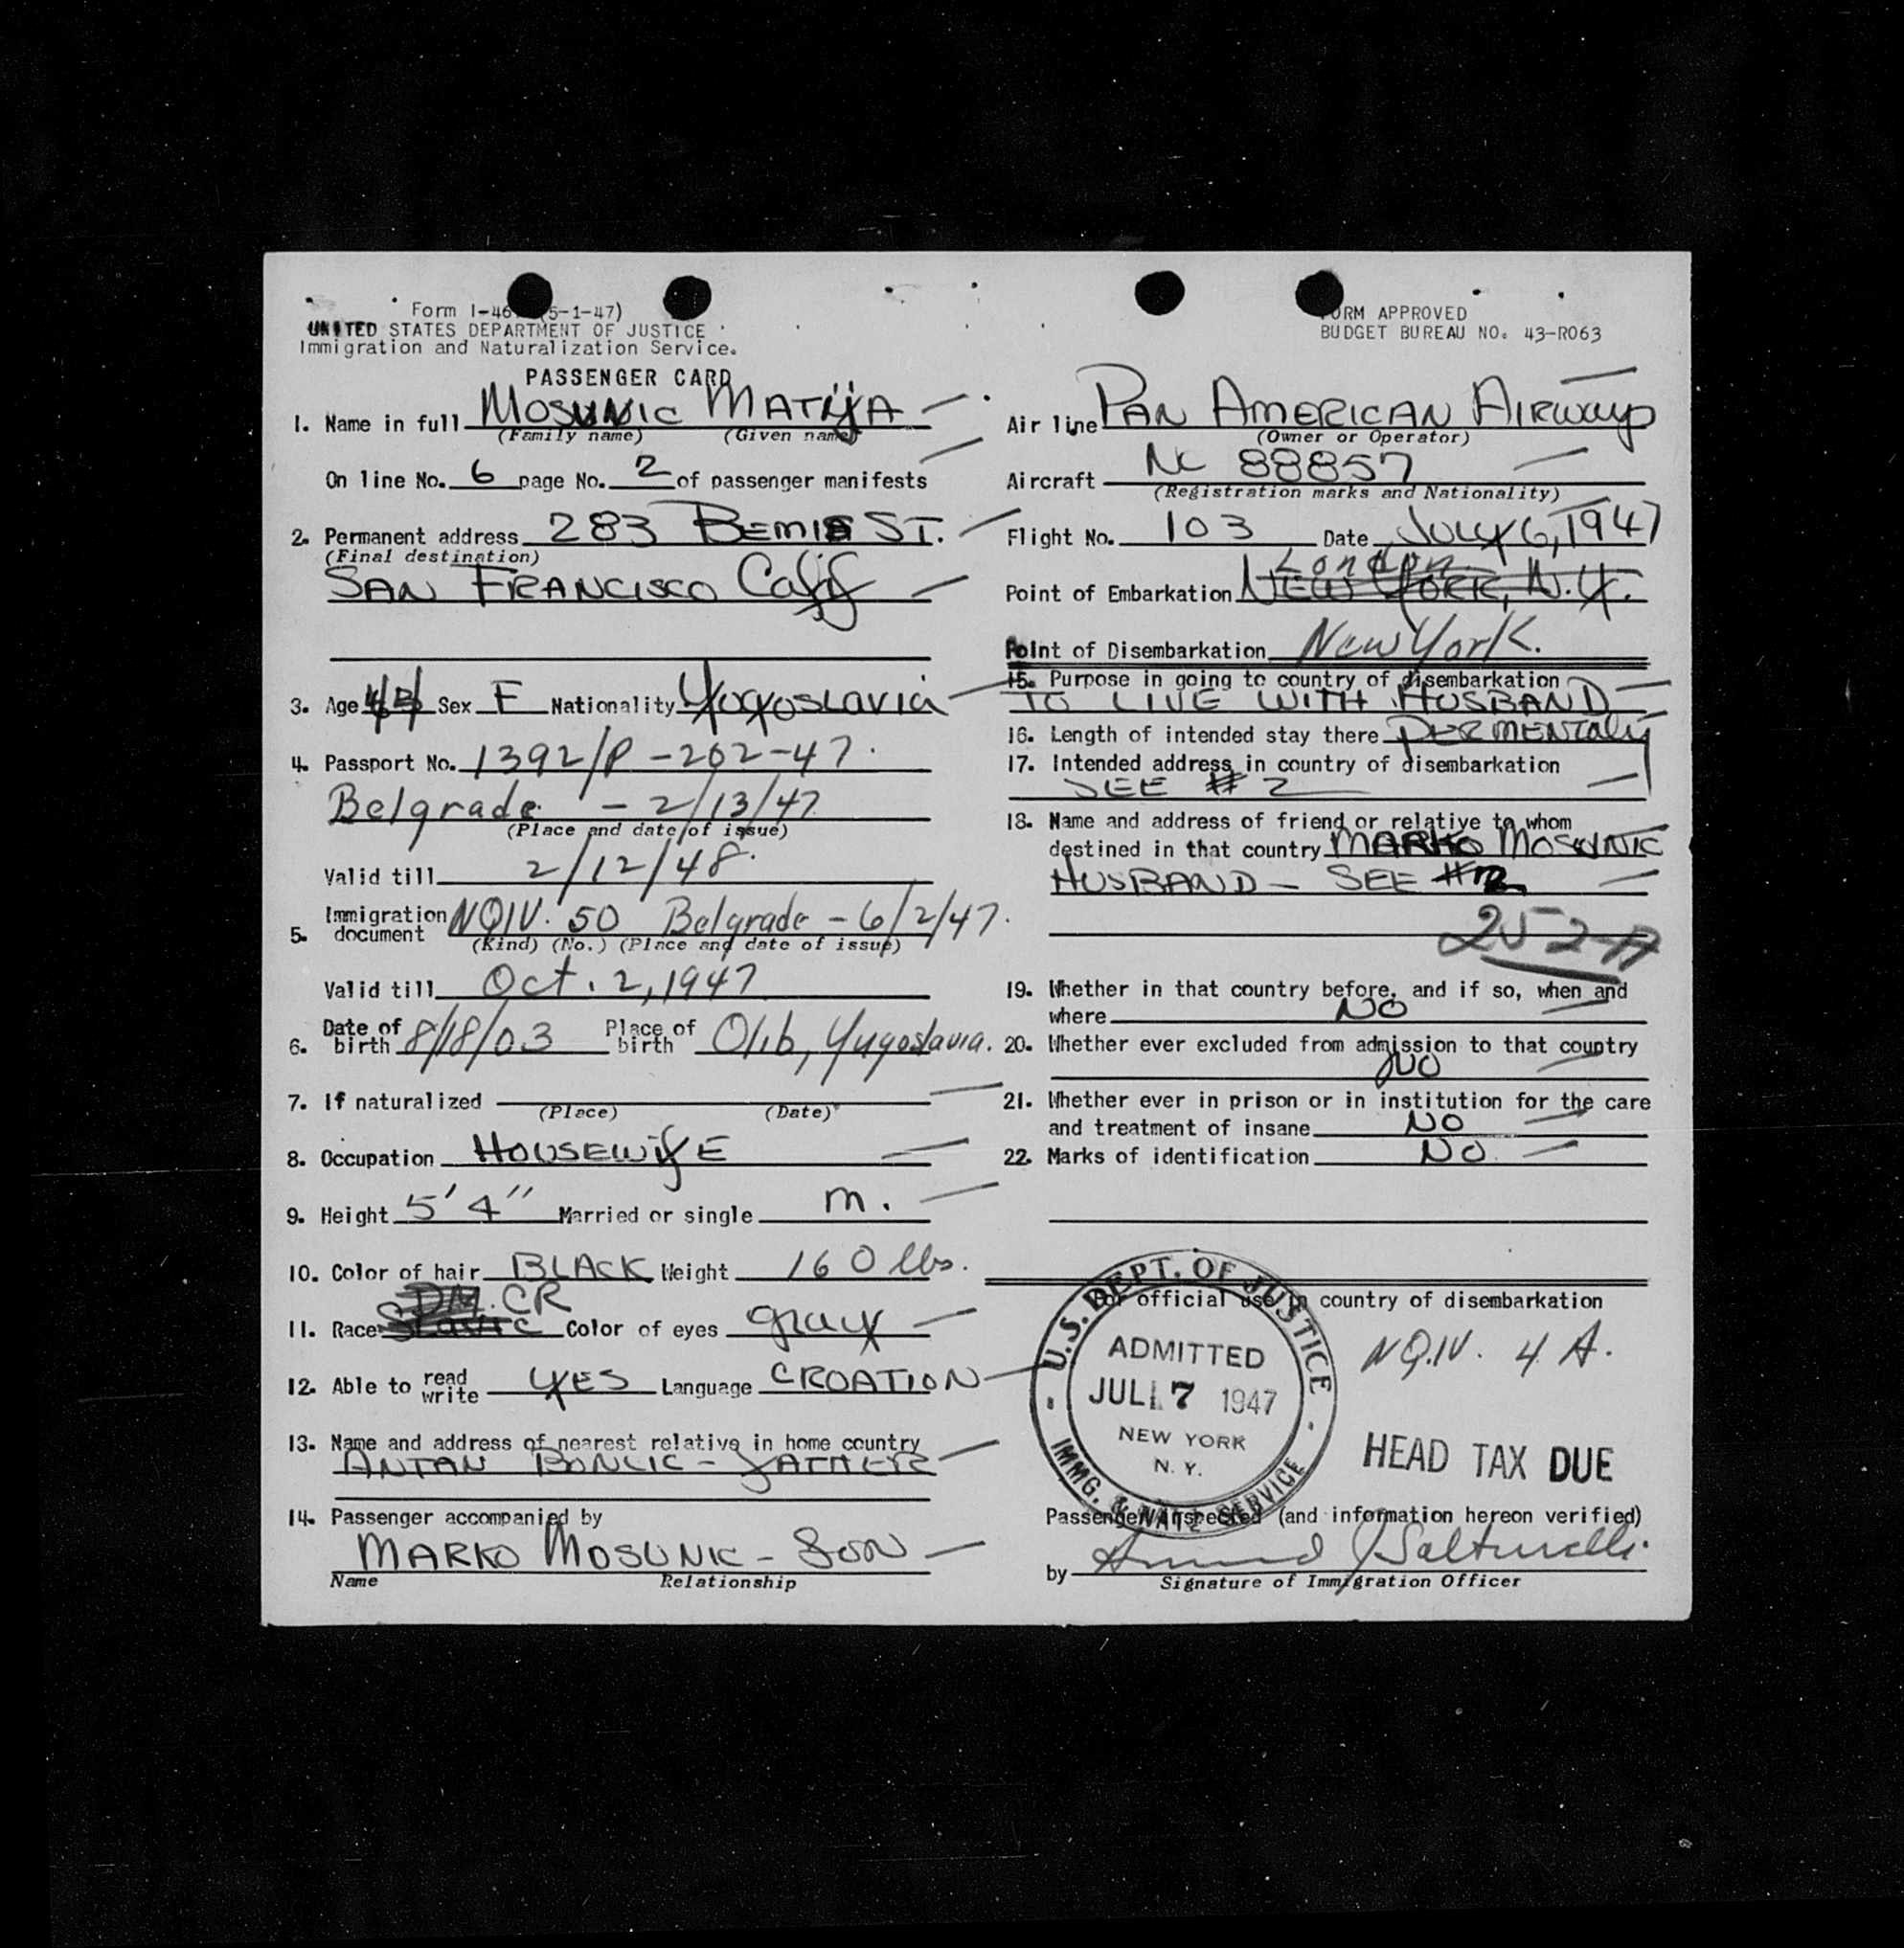 Form I-46 (5-1-47)
UNITED STATES DEPARTMENT OF JUSTICE
Immigration and Naturalization Service.
FORM APPROVED
BUDGET BUREAU NO. 43-R063
PASSENGER CARD
1. Name in full MOSUNIC MATIJA
(Family name) (Given name)
On line No. 6 page No. 2 of passenger manifests
2. Permanent address 283 BEMIS ST.
(Final destination)
SAN FRANCISCO Calif
3. Age Sex F Nationality Yogoslavia
4. Passport No. 1392/P-202-47.
Belgrade - 2/13/47
(Place and date of issue)
Valid till 2/12/48.
5. Immigration document NQIV. 50 Belgrade - 6/2/47.
(Kind) (No.) (Place and date of issue)
Valid till Oct. 2, 1947
6. Date of birth 8/18/03 Place of birth Olib, Yugoslavia.
7. If naturalized
(Place) (Date)
8. Occupation HOUSEWIFE
9. Height 5'4" Married or single m.
10. Color of hair BLACK Weight 160 lbs.
DM. CR
11. Race Slavic Color of eyes gray
12. Able to read write YES Language CROATION
13. Name and address of nearest relative in home country
ANTAN BONCIC - FATHER
14. Passenger accompanied by
MARKO MOSUNIC - SON
Name Relationship
Air line PAN AMERICAN AIRways
(Owner or Operator)
Aircraft NC 88857
(Registration marks and Nationality)
Flight No. 103 Date July 6, 1947
London
Point of Embarkation NEW YORK, N.Y.
Point of Disembarkation New York.
15. Purpose in going to country of disembarkation
TO LIVE WITH HUSBAND
16. Length of intended stay there PERMENTALY
17. Intended address in country of disembarkation
SEE # 2
18. Name and address of friend or relative to whom
destined in that country MARKO MOSUNIC
HUSBAND - SEE #2
252-A
19. Whether in that country before, and if so, when and
where NO
20. Whether ever excluded from admission to that country
NO
21. Whether ever in prison or in institution for the care
and treatment of insane NO
22. Marks of identification NO
For official use in country of disembarkation
U.S. DEPT. OF JUSTICE
ADMITTED
JUL 7 1947
NEW YORK
N. Y.
IMMG. & NATZ SERVICE
NQ.IV. 4 A.
HEAD TAX DUE
Passenger inspected (and information hereon verified)
by
Signature of Immigration Officer